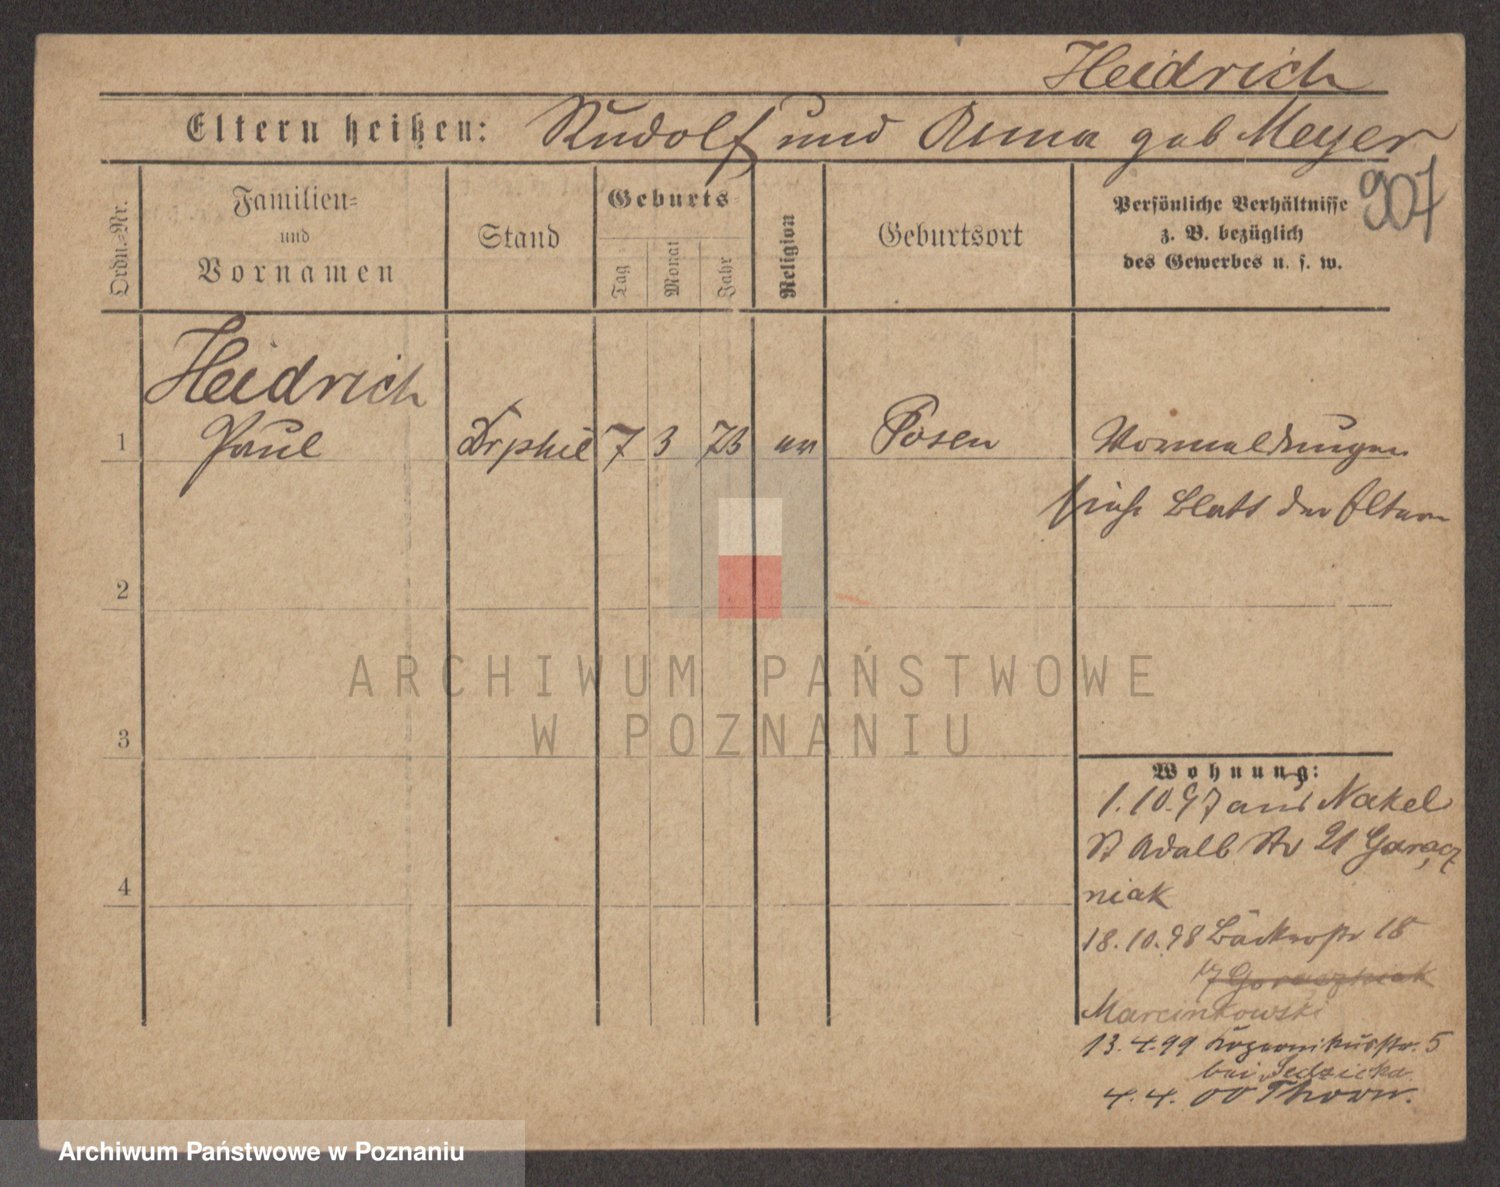 Heidrich
Eltern heißen: Rudolf und Anna geb Meyer
907
Ordn.-Nr.
Familien-
und
Vornamen
Stand
Geburts-
Tag
Monat
Jahr
Religion
Geburtsort
Persönliche Verhältnisse
z. B. bezüglich
des Gewerbes u. s. w.
Heidrich
1 Paul Dr phil 7 3 73 ev Posen Vormeldungen
siehe Blatt der Eltern
2
3
4
Wohnung:
1.10.97 aus Nakel
St Adalb Str 21 Garącz
niak
18.10.98 Bäckerstr 18
Goraczniak
Marcinkowski
13.4.99 Kopernikusstr. 5
bei Jedzicka
4.4.00 Thorn.
ARCHIWUM PAŃSTWOWE
W POZNANIU
Archiwum Państwowe w Poznaniu